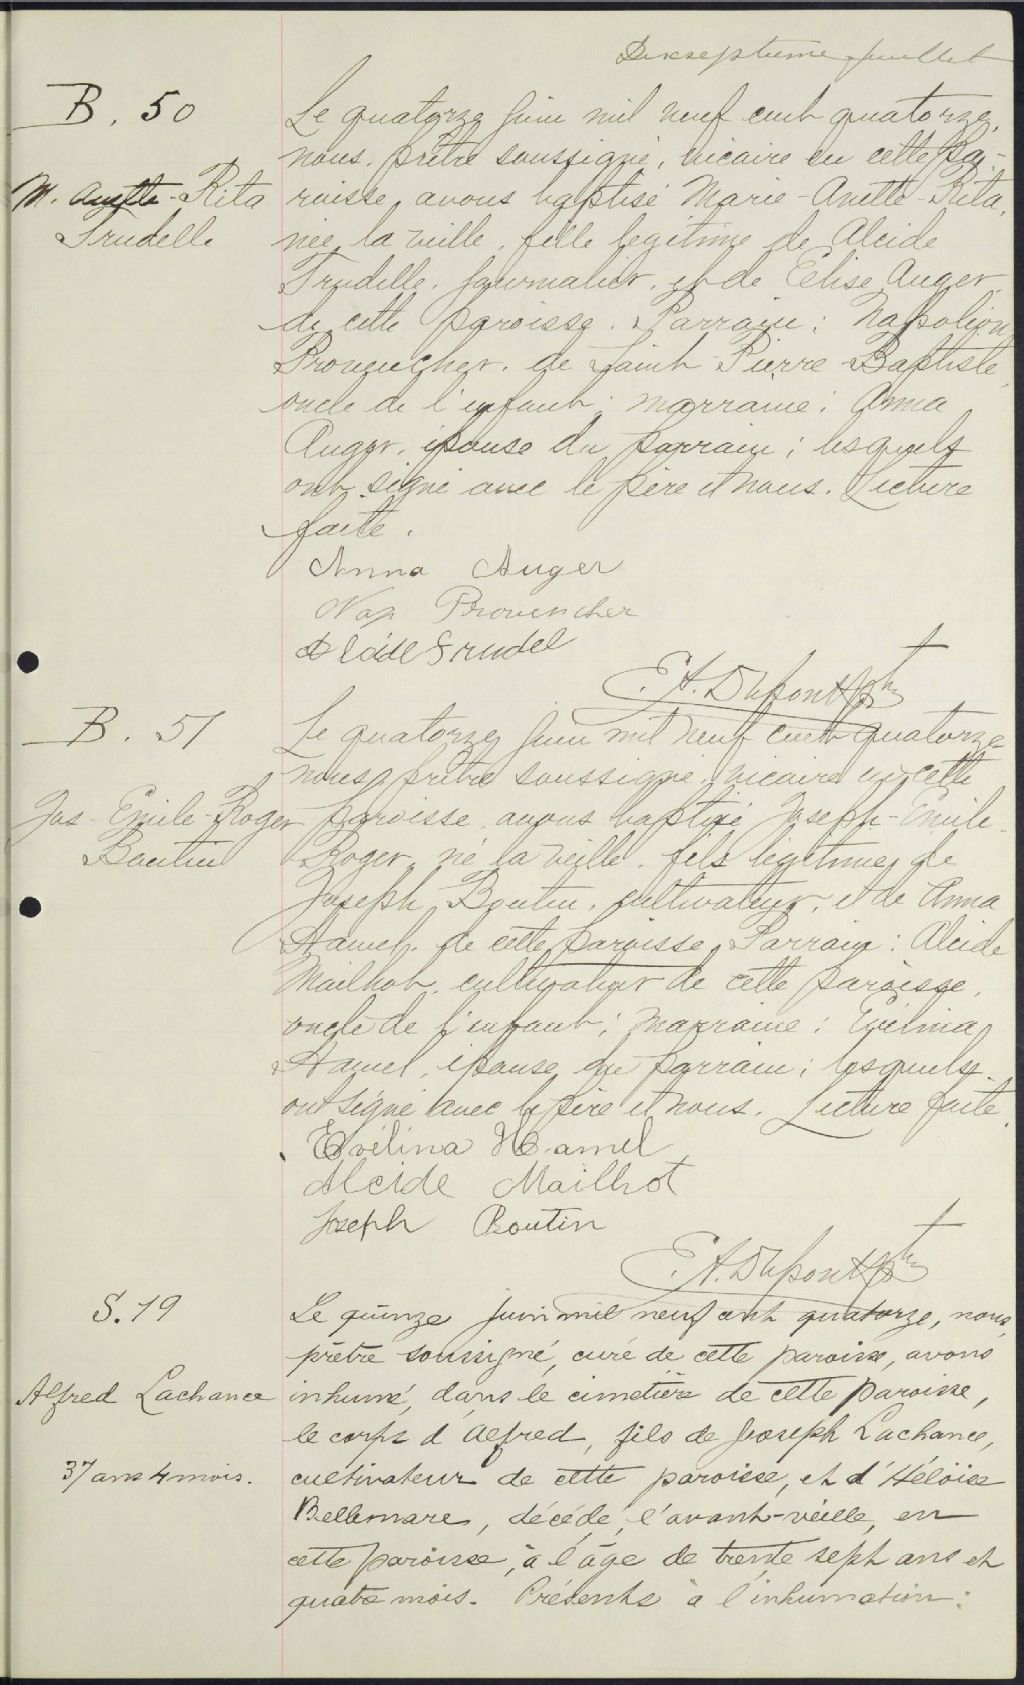 Dixseptième feuillet
B. 50
M. Anette-Rita
Trudelle
Le quatorze Juin mil neuf cent quatorze,
nous, prêtre soussigné, vicaire en cette pa-
roisse, avons baptisé Marie-Anette-Rita,
née la veille, fille légitime de Alcide
Trudelle, journalier, et de Elise Auger
de cette paroisse. Parrain: Napoléon
Provencher, de Saint-Pierre-Baptiste,
oncle de l'enfant; marraine: Anna
Auger, épouse du parrain; lesquels
ont signé avec le père et nous. Lecture
faite.
Anna Auger
Nap Provencher
Alcide Trudel
E.A. Dupont Ptre
B. 51
Jos-Emile-Roger
Boutin
Le quatorze Juin mil neuf cent quatorze
nous prêtre soussigné, vicaire en cette
paroisse, avons baptisé Joseph-Emile-
Roger, né la veille, fils légitime de
Joseph Boutin, cultivateur, et de Anna
Hamel, de cette paroisse. Parrain: Alcide
Mailhot, cultivateur de cette paroisse,
oncle de l'enfant; marraine: Evélina
Hamel, épouse du parrain; lesquels
ont signé avec le père et nous. Lecture faite.
Evélina Hamel
Alcide Mailhot
Joseph Boutin
E.A. Dupont Ptre
S. 19
Alfred Lachance
37 ans 4 mois.
Le quinze juin mil neuf cent quatorze, nous,
prêtre soussigné, curé de cette paroisse, avons
inhumé, dans le cimetière de cette paroisse,
le corps d'Alfred, fils de Joseph Lachance,
cultivateur de cette paroisse, et d'Héloïse
Bellemare, décédé, l'avant-veille, en
cette paroisse, à l'âge de trente sept ans et
quatre mois. Présents à l'inhumation: